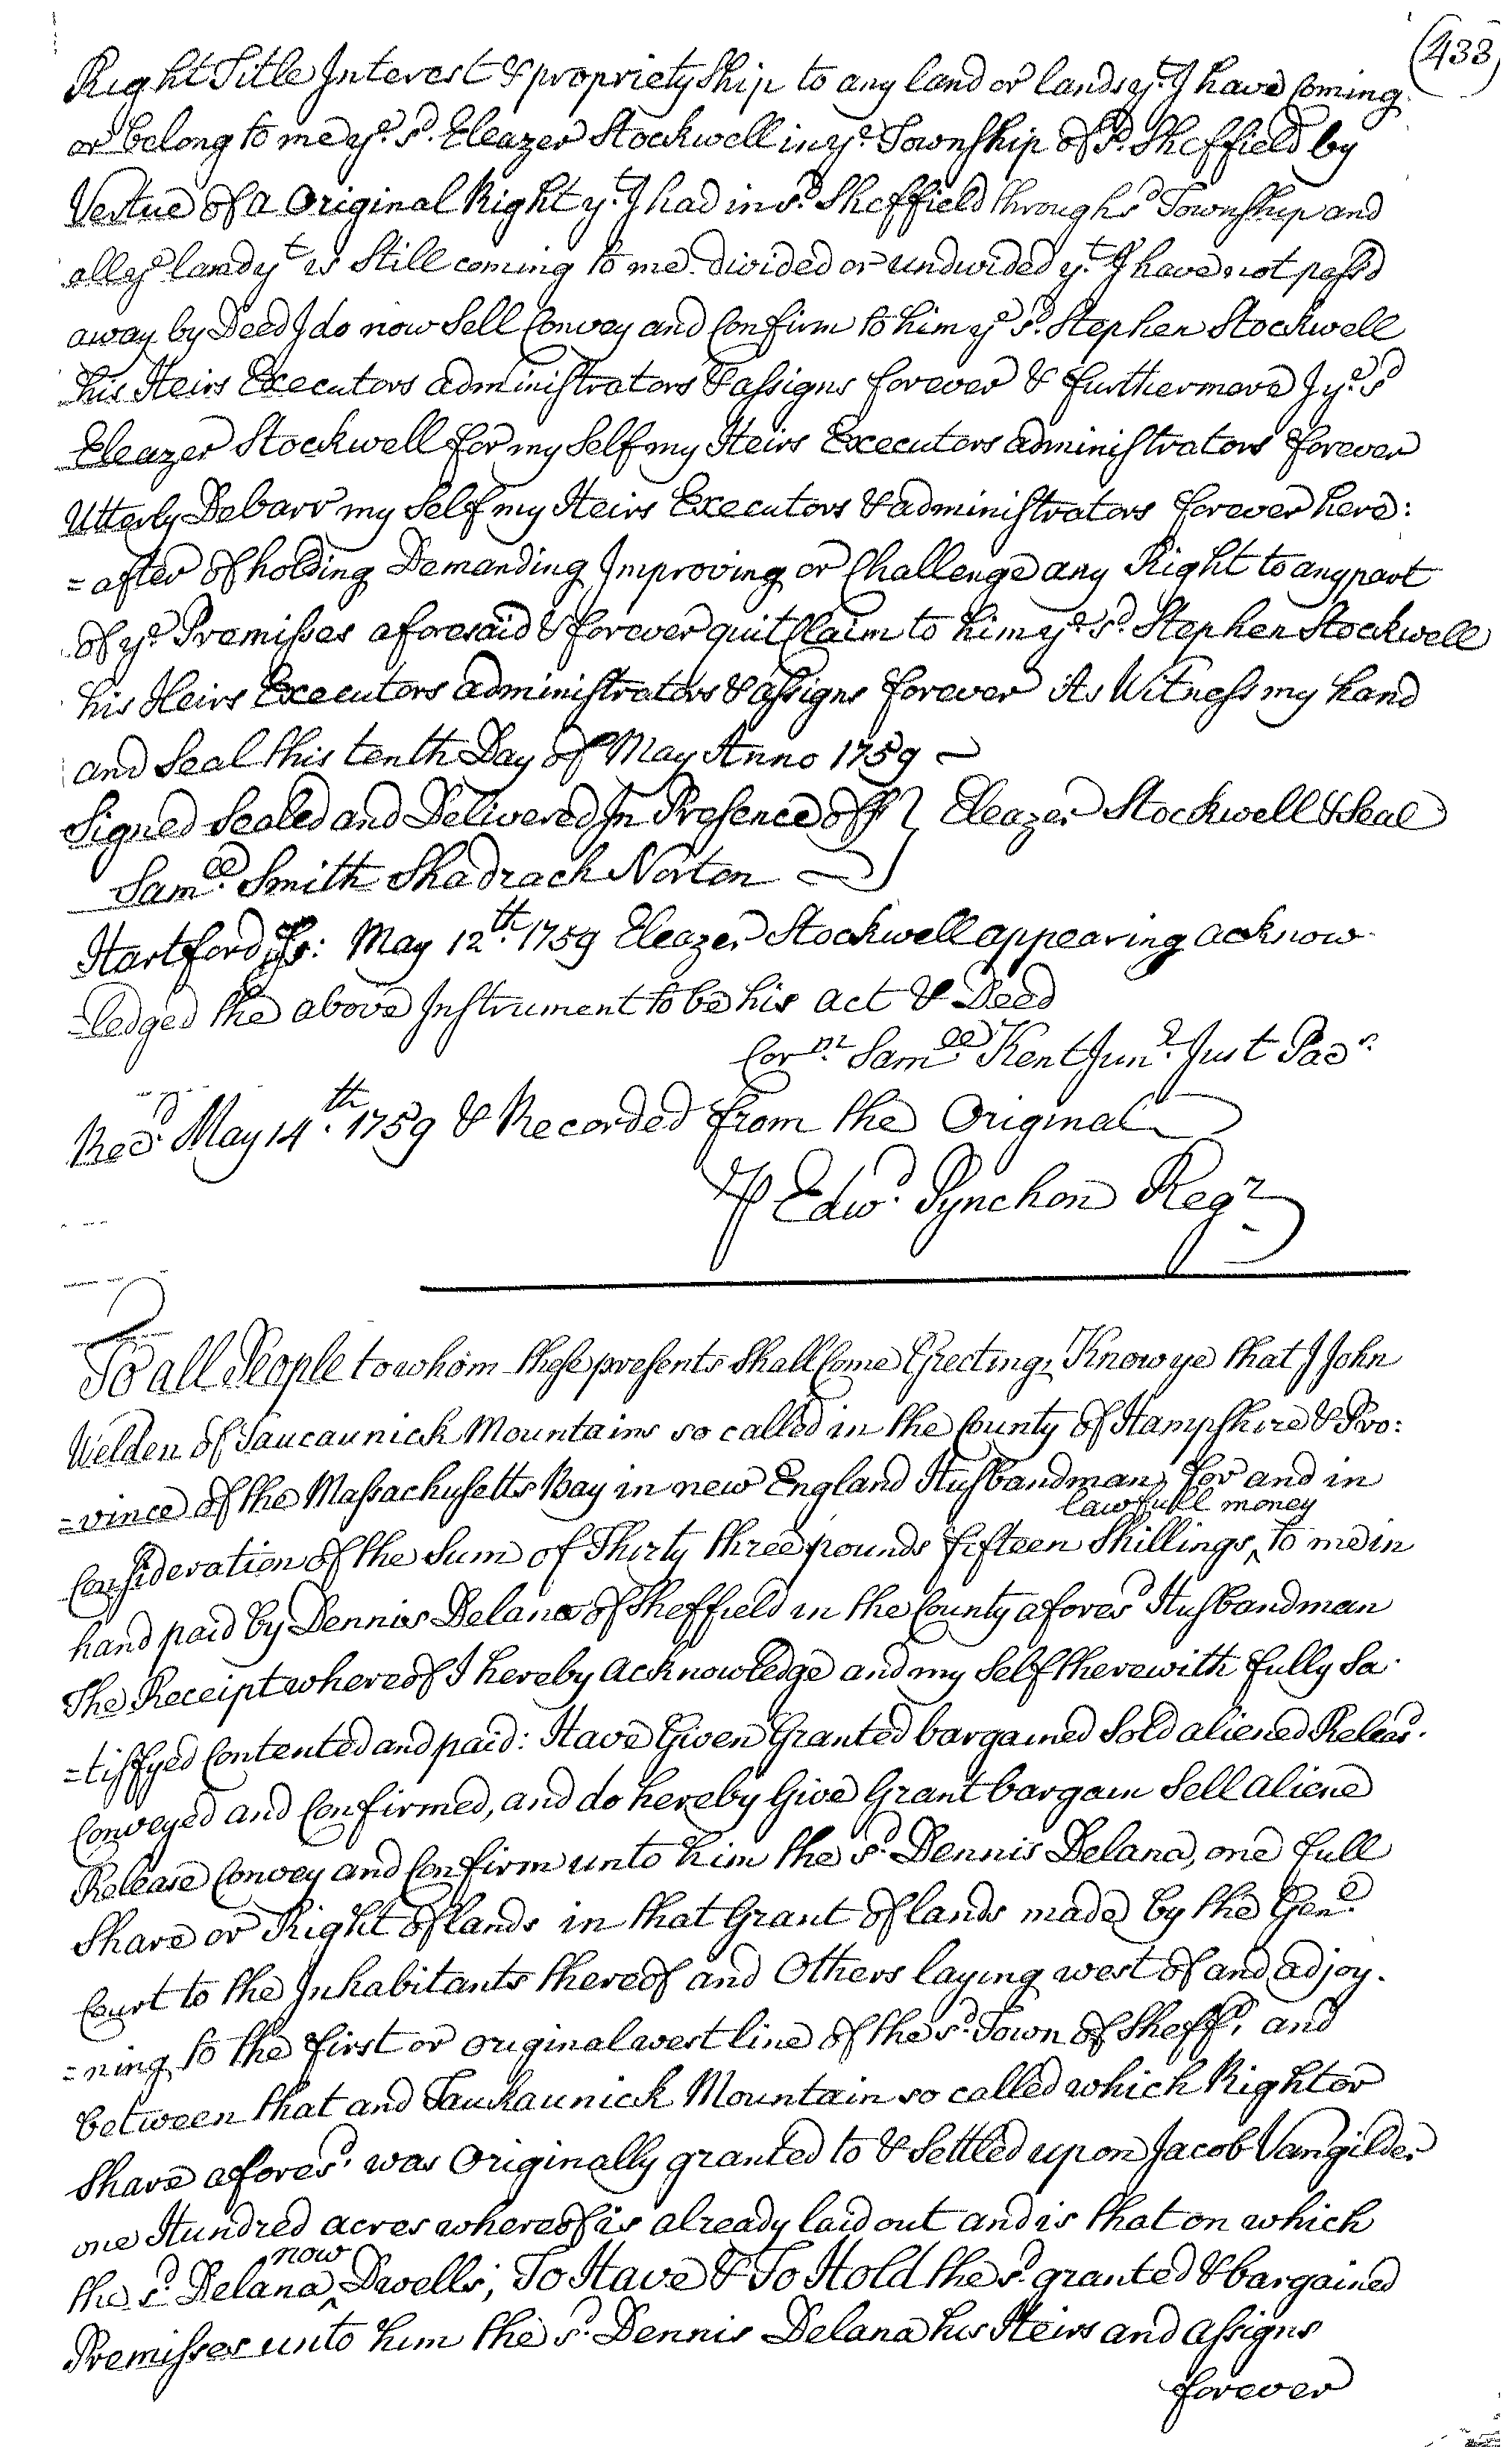 (433)
Right Title Interest & propriety Ship to any land or lands yt. I have Coming
or belong to me ye. sd. Eleazer Stockwell in ye. Township of sd. Sheffield by
Vertue of a Original Right yt. I had in sd. Sheffield through sd Township and
all ye land yt is Still coming to me divided or undivided yt. I have not passd
away by Deed I do now Sell Convey and Confirm to him ye sd. Stephen Stockwell
his Heirs Executors administrators & assigns forever & furthermore I ye. sd
Eleazer Stockwell for my Self my Heirs Executors administrators forever
Utterly Debarr my Self my Heirs Executors & administrators forever here:
=after of holding Demanding Improving or Challenge any Right to any part
of ye. Premisses aforesaid & forever quit Claim to him ye. sd. Stephen Stockwell
his Heirs Executors administrators & assigns forever As Witness my hand
and Seal this tenth Day of May Anno 1759
Signed Sealed and Delivered In Presence off } Eleazer Stockwell & Seal
Samll. Smith Shadrach Norton
Hartford Ss: May 12th. 1759 Eleazer Stockwell appearing acknow
=ledged the above Instrument to be his act & Deed
Cor nr Samll. Kent Junr. Just Pace
Recd. May 14th. 1759 & Recorded from the Original
P Edwd. Pynchon Regr
To all People to whom these presents Shall Come Greeting, Know ye that I John
Welden of Taucaunick Mountains so called in the County of Hampshire & Pro:
=vince of the Massachusetts Bay in new England Husbandman, for and in
lawfull money
Consideration of the Sum of Thirty three pounds fifteen Shillings, ^ to me in
hand paid by Dennis Delana of Sheffield in the County aforesd Husbandman
The Receipt whereof I hereby acknowledge and my Self therewith fully Sa
=tisfyed Contented and paid: Have Given Granted bargained Sold aliened Releasd.
Conveyed and Confirmed, and do hereby Give Grant bargain Sell aliene
Release Convey and Confirm unto him the sd. Dennis Delana, one full
Share or Right of lands in that Grant of lands made by the Genll.
Court to the Inhabitants thereof and Others laying west of and adjoy.
=ning to the first or original west line of the sd. Town of Sheffd, and
between that and Tauhaunick Mountain so called which Right or
Share aforesd. was Originally granted to & Settled upon Jacob Vangilder
one Hundred acres whereof is already laid out and is that on which
now
the sd. Delana ^ Dwells; To Have & To Hold the sd. granted & bargained
Premisses unto him the sd. Dennis Delana his Heirs and assigns
forever